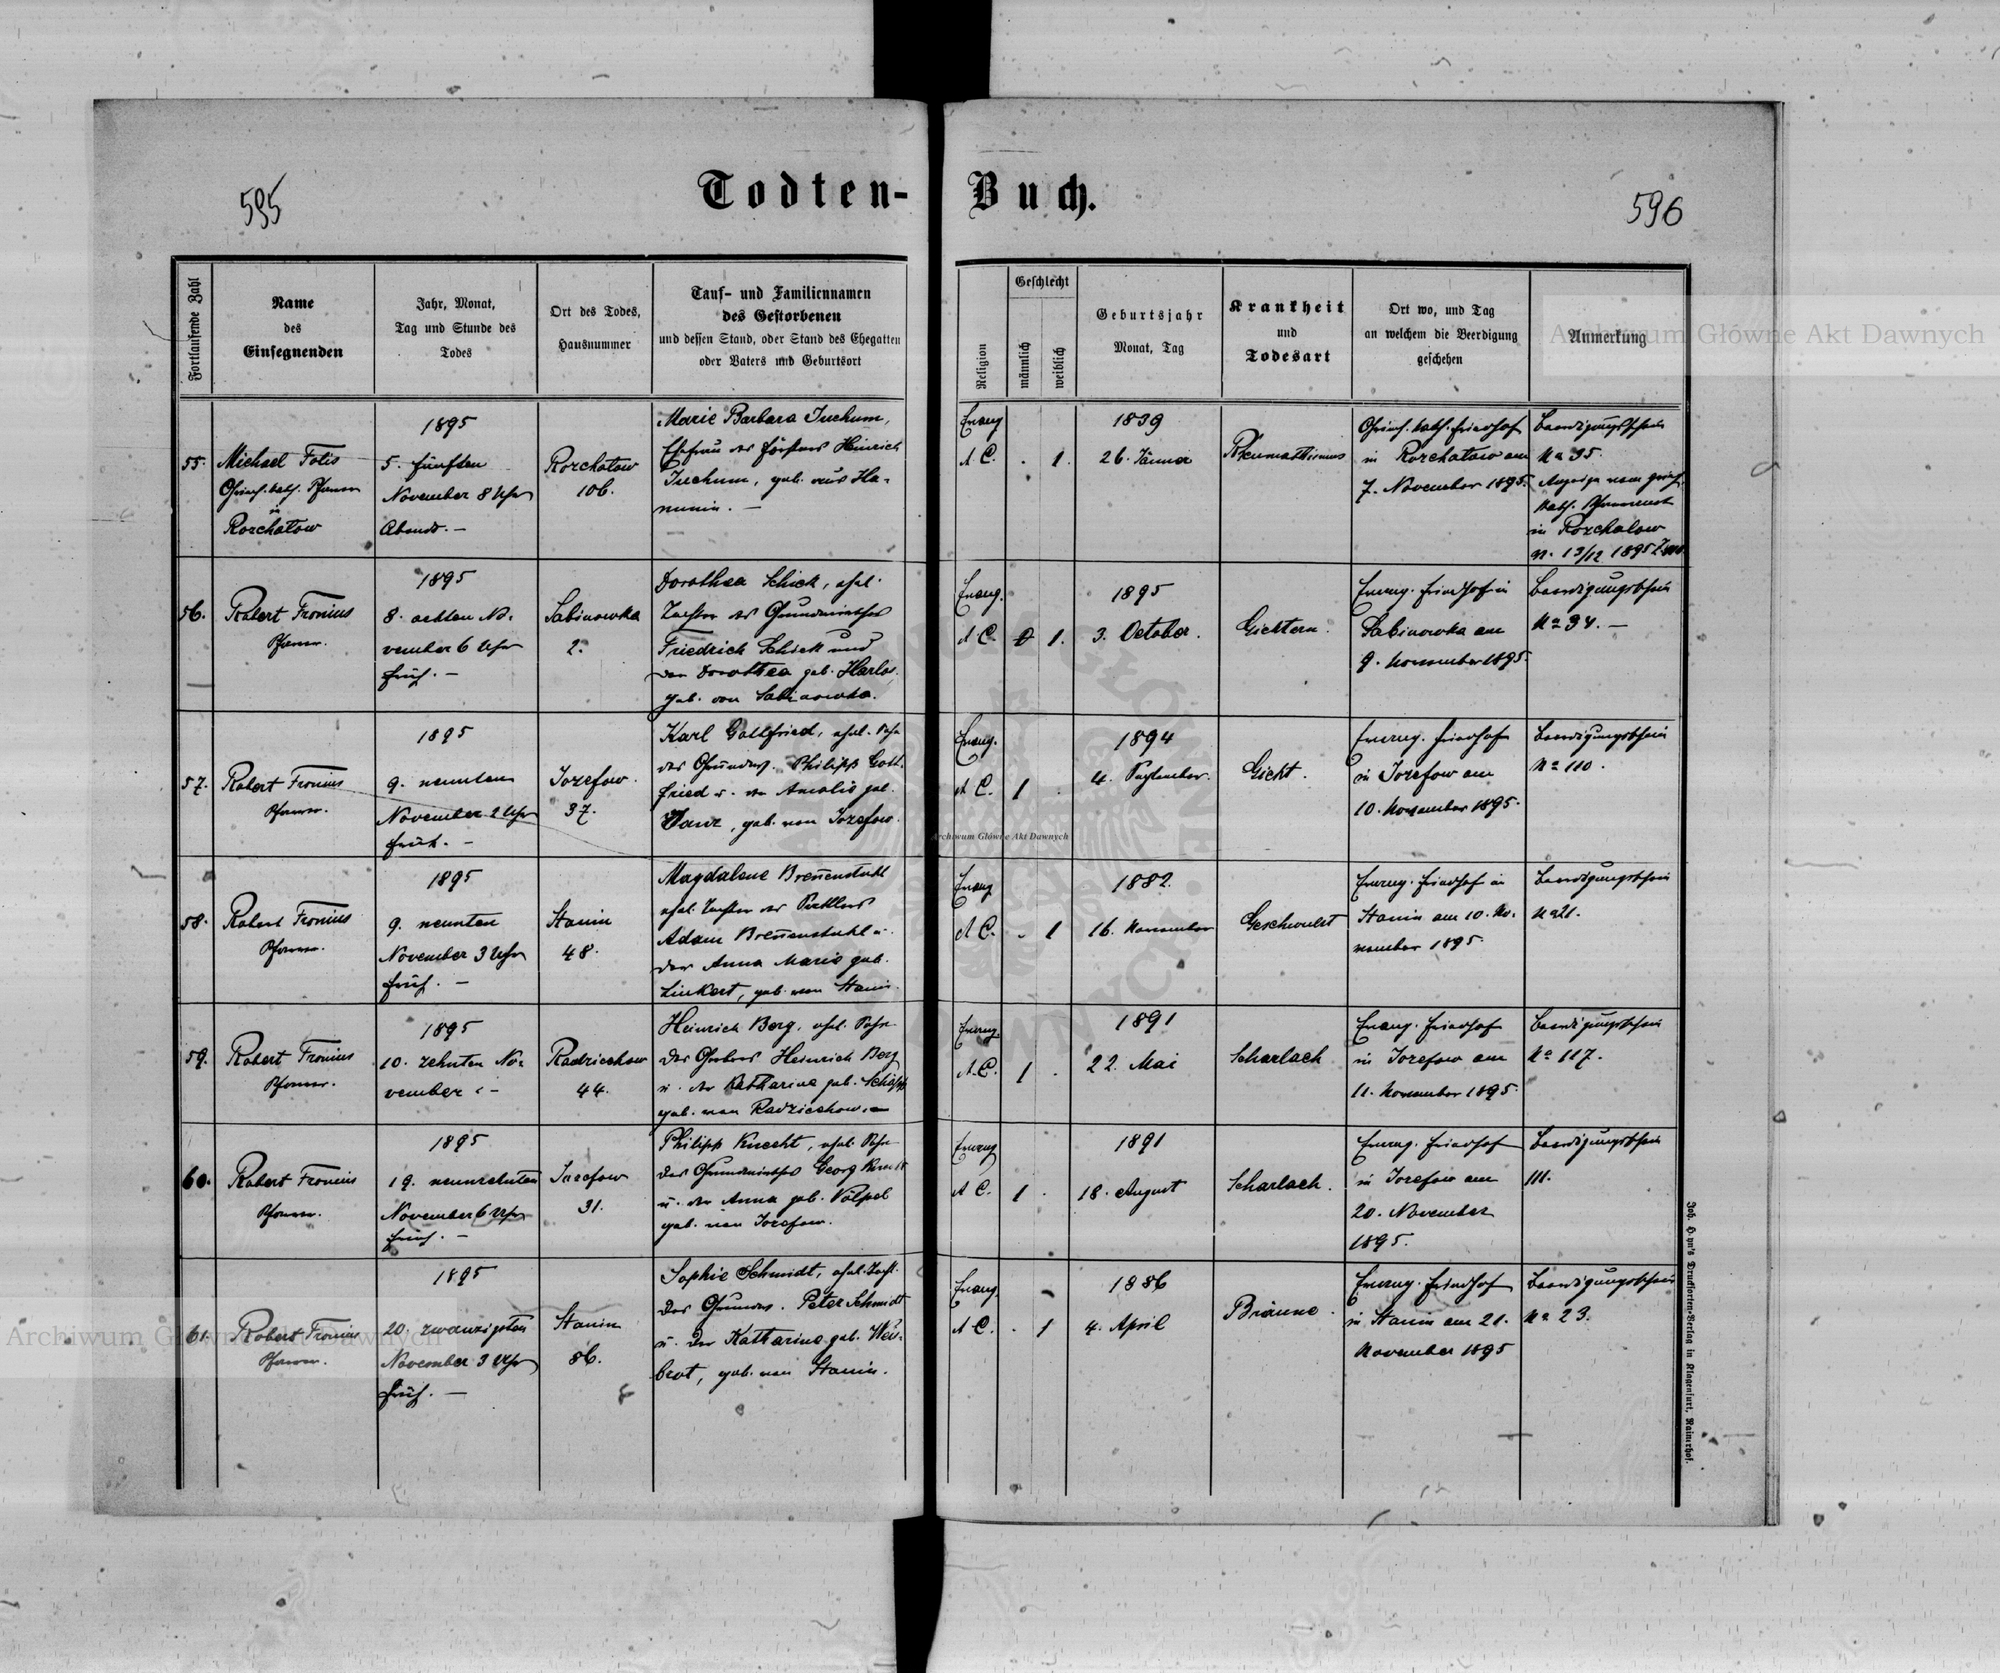 595
Todten-
Buch.
596
Fortlaufende Zahl
Name
des
Einsegnenden
Jahr, Monat,
Tag und Stunde des
Todes
Ort des Todes,
Hausnummer
Tauf- und Familiennamen
des Gestorbenen
und dessen Stand, oder Stand des Ehegatten
oder Vaters und Geburtsort
Religion
Geschlecht
männlich
weiblich
Geburtsjahr
Monat, Tag
Krankheit
und
Todesart
Ort wo, und Tag
an welchem die Beerdigung
geschehen
Anmerkung
55.
Michael Fotis
Griech. kath. Pfarrer
in
Rozchatow
1895
5. fünften
November 8 Uhr
Abends. —
Rozchatow
106.
Marie Barbara Juchum,
Ehfrau des Försters Heinrich
Juchum, geb. aus Ha-
nunin. —
Evang
A. C.
. 1.
1839
26. Jänner
Rheumathismus
Griech. kath. Friedhof
in Rozchatow am
7. November 1895.
Beerdigungsschein
No 35.
Anzeige vom griech.
kath. Pfarramt
in Rozchatow
n. 13/12 1895 Z.
56.
Robert Fronius
Pfarrer.
1895
8. achten No-
vember 6 Uhr
früh. —
Sabinowka
2.
Dorothea Schick, ehel.
Tochter des Grundwirthes
Friedrich Schick und
der Dorothea geb. Harlos,
geb. von Sabinowka.
Evang.
A. C.
1.
1895
3. October.
Gichtern.
Evang. Friedhof in
Sabinowka am
9. November 1895.
Beerdigungsschein
No 34. —
57.
Robert Fronius
Pfarrer.
1895
9. neunten
November 2 Uhr
früh. —
Jozefow.
37.
Karl Gottfried, ehel. Sohn
des Grundw. Philipp Gott-
fried u. der Amalie geb.
Wanz, geb. von Jozefow.
Evang.
A. C.
1 .
1894
4. September.
Gicht.
Evang. Friedhof
in Jozefow am
10. November 1895.
Beerdigungsschein
No 110.
58.
Robert Fronius
Pfarrer.
1895
9. neunten
November 3 Uhr
früh. —
Stanin
48.
Magdalene Breñenstuhl
ehel. Tochter des
Adam Breñenstuhl u.
der Anna Marie geb.
Linkert, geb. von Stanin.
Evang
A. C.
. 1
1882.
16. November
Geschwulst
Evang. Friedhof in
Stanin am 10. No-
vember 1895.
Beerdigungsschein
No 21.
59.
Robert Fronius
Pfarrer.
1895
10. zehnten No-
vember
Radziechow
44.
Heinrich Berg, ehel. Sohn
des Heinrich Berg
u. der Katharine geb. Schäpp
geb. von Radziechow. —
Evang.
A. C.
1 .
1891
22. Mai
Scharlach
Evang. Friedhof
in Jozefow am
11. November 1895.
Beerdigungsschein
No 117.
60.
Robert Fronius
Pfarrer.
1895
19. neunzehnten
November 6 Uhr
früh. —
Jozefow
31.
Philipp Knecht, ehel. Sohn
des Grundwirthes Georg Knecht
u. der Anna geb. Völpel
geb. von Jozefow.
Evang
A. C.
1 .
1891
18. August
Scharlach.
Evang. Friedhof
in Jozefow am
20. November
1895.
Beerdigungsschein
111.
61.
Robert Fronius
Pfarrer.
1895
20. zwanzigsten
November 3 Uhr
früh. —
Stanin
86.
Sophie Schmidt, ehel. Tocht.
des Grundw. Peter Schmidt
u. der Katharine geb. Weis-
brot, geb. von Stanin.
Evang
A. C.
. 1
1886
4. April
Bräune.
Evang. Friedhof
in Stanin am 21.
November 1895
Beerdigungsschein
No 23.
Joh. Heyn's Drucksorten-Verlag in Klagenfurt, Rainerhof.
Archiwum Główne Akt Dawnych
Archiwum Główne Akt Dawnych
Archiwum Główne Akt Dawnych